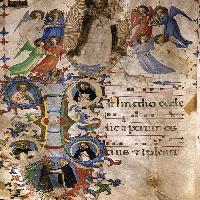 In medio eccle
sie aperuit os
eius et